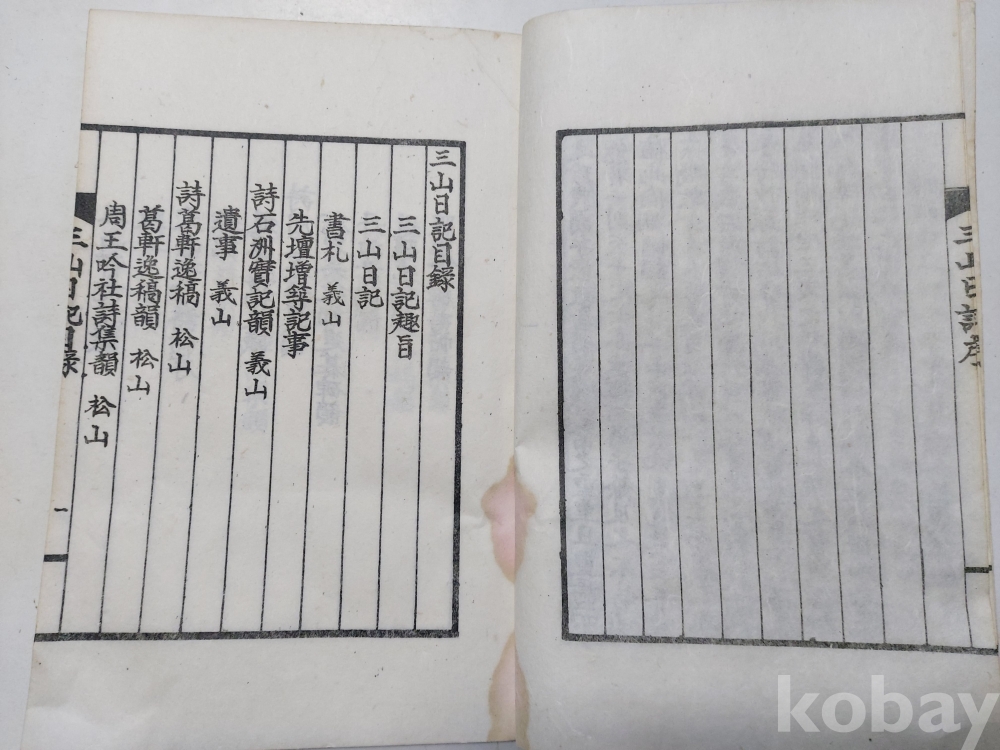 三山日記序
三山日記目錄
三山日記趣旨
三山日記
書札 義山
先壇增築記事
詩石洲寶記韻 義山
遺事 義山
詩葛軒逸稿 松山
葛軒逸稿韻 松山
周王吟社詩集韻 松山
三山日記目錄
一
kobay